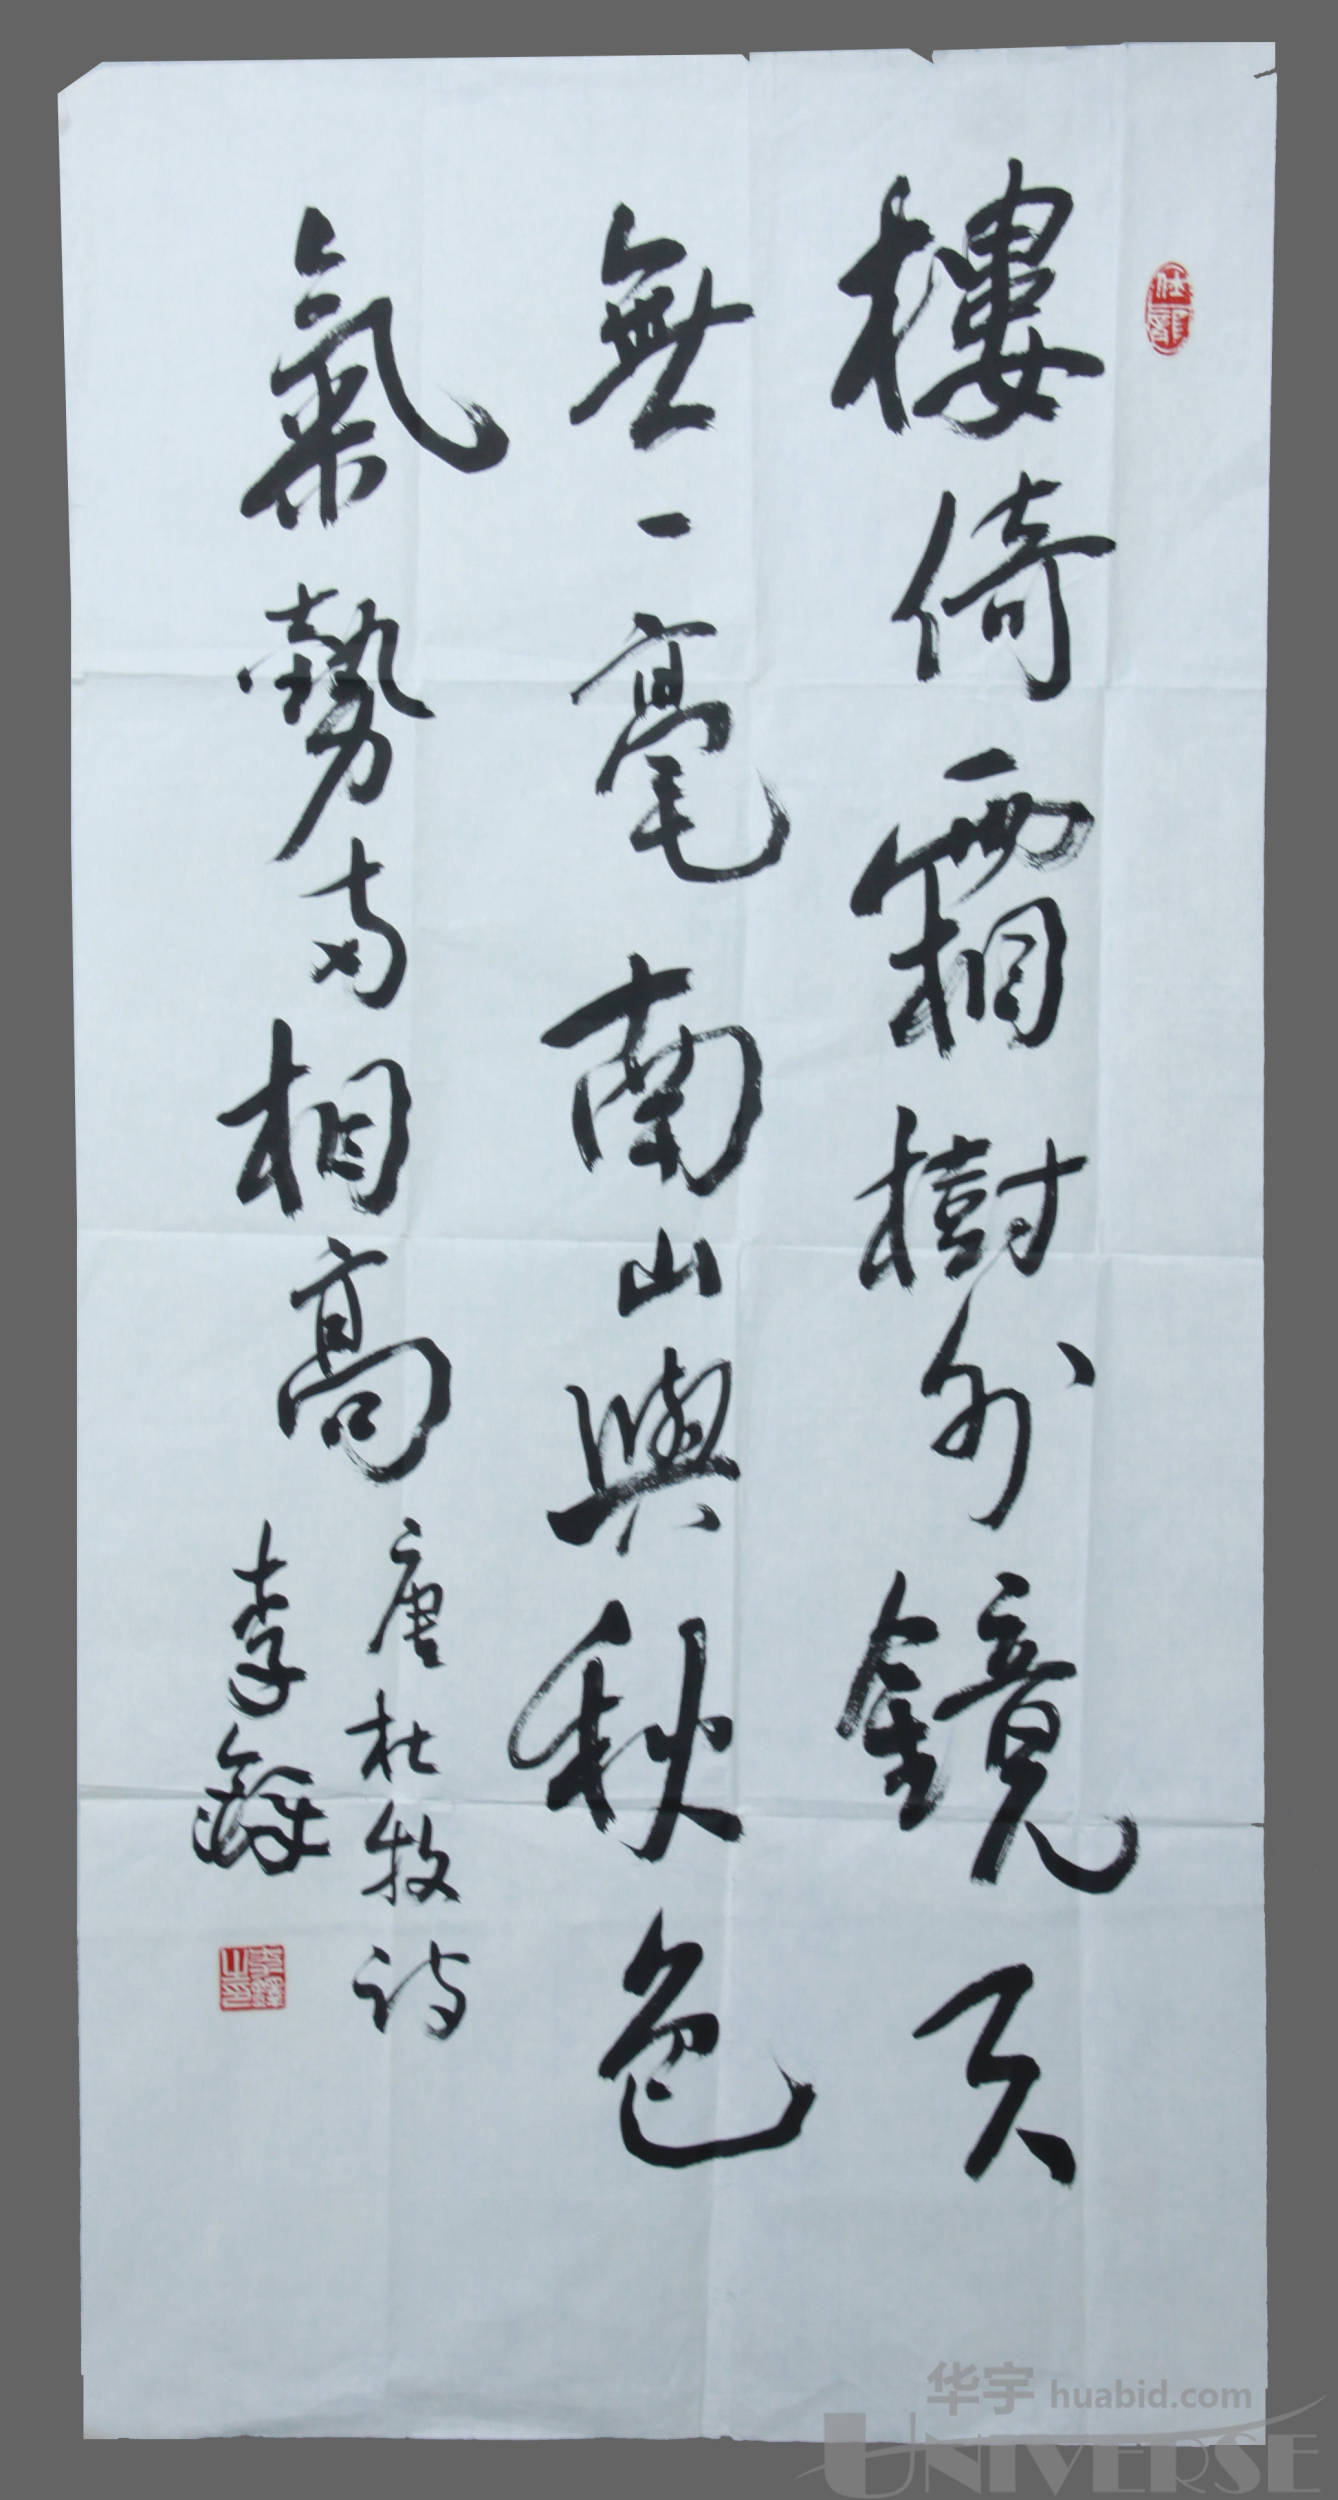 樓倚霜樹外鏡天
無一毫南山與秋色
氣勢兩相高
唐杜牧詩
李鐸
华宇 huabid.com
UNIVERSE